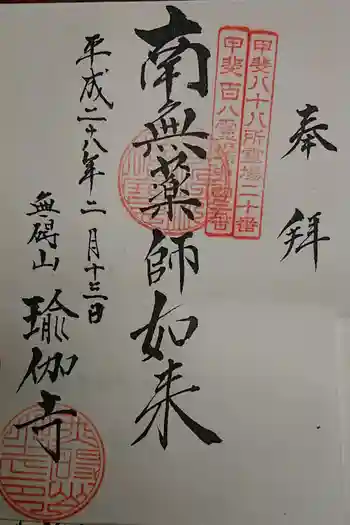 奉拝
甲斐八十八所霊場二十番
甲斐百八霊場
南無薬師如来
平成二十八年二月十三日
無碍山
瑜伽寺